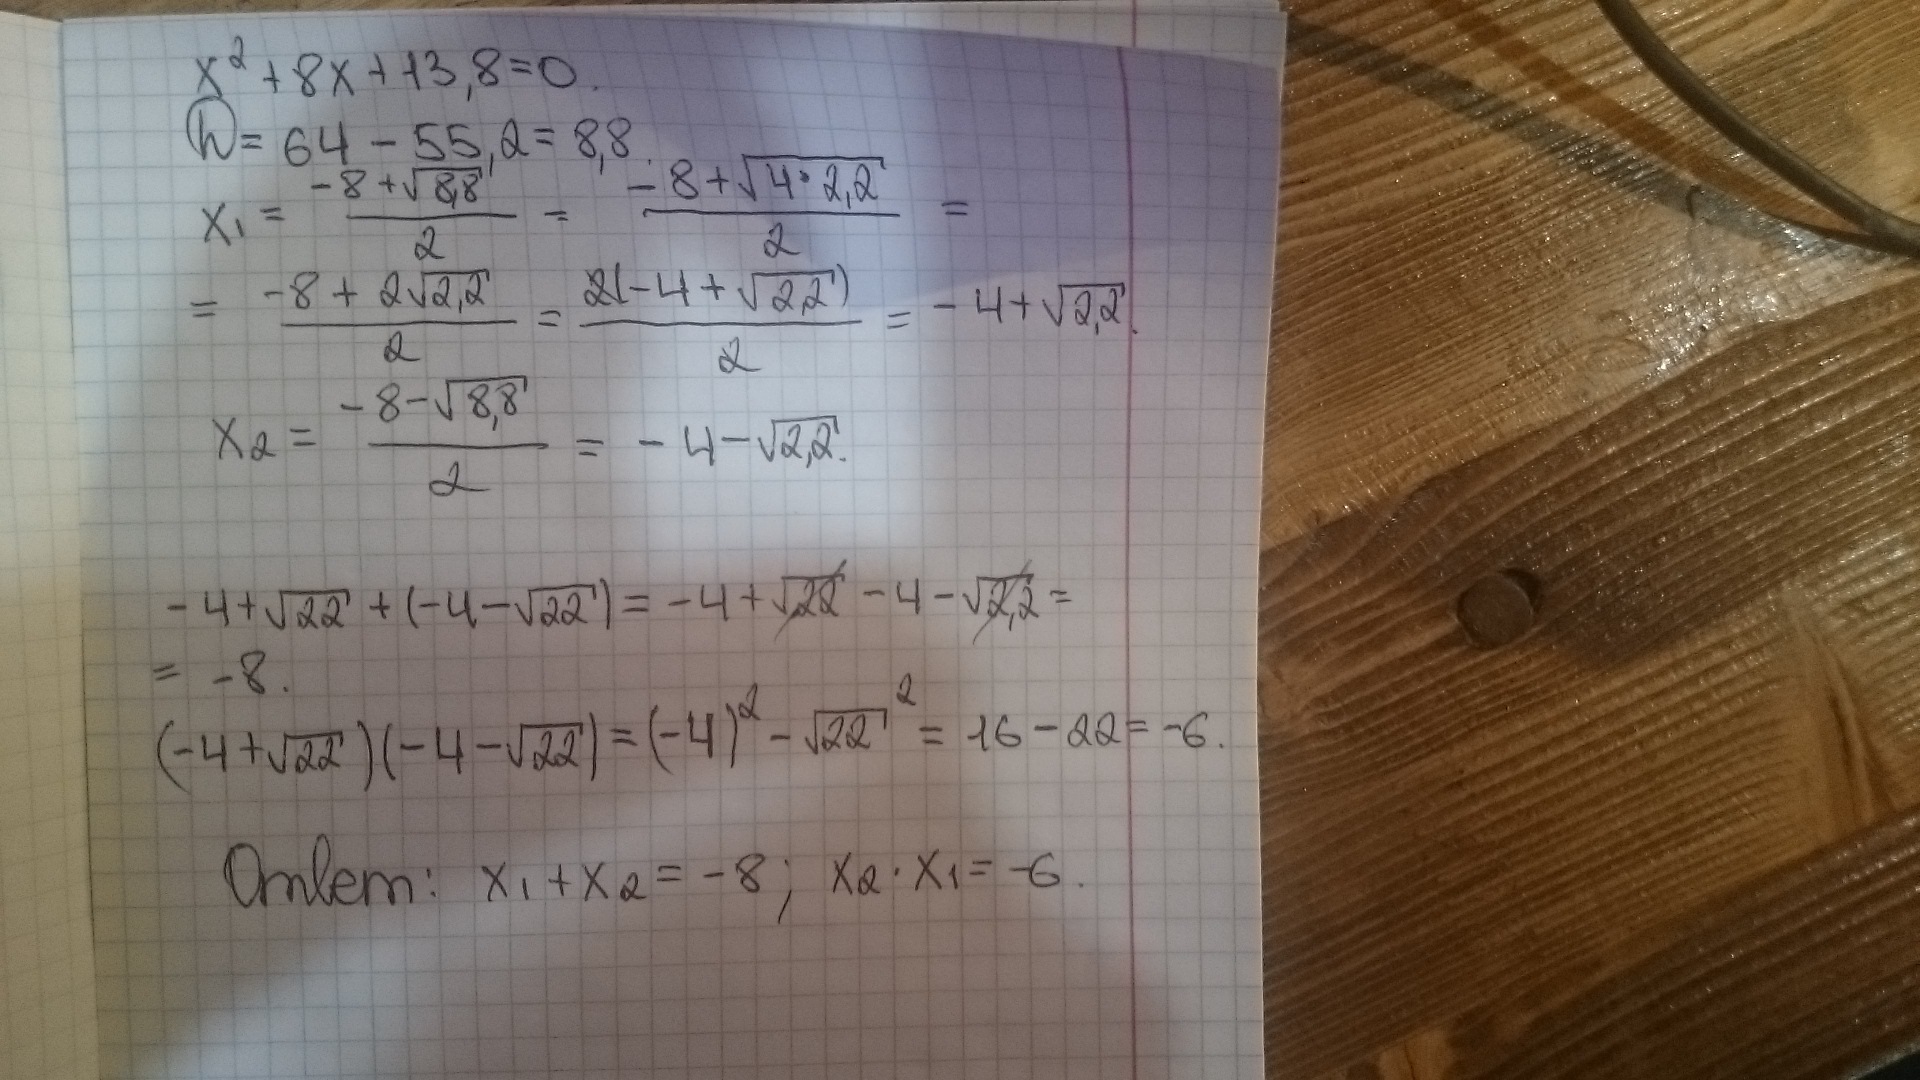 x² + 8x + 13,8 = 0.
D = 64 - 55,2 = 8,8.
x₁ = (-8 + √8,8)/2 = (-8 + √(4·2,2))/2 =
= (-8 + 2√2,2)/2 = 2(-4 + √2,2)/2 = -4 + √2,2.
x₂ = (-8 - √8,8)/2 = -4 - √2,2.
-4 + √22 + (-4 - √22) = -4 + √22 - 4 - √2,2 =
= -8.
(-4 + √22)(-4 - √22) = (-4)² - √22² = 16 - 22 = -6.
Ответ: x₁ + x₂ = -8; x₂ · x₁ = -6.